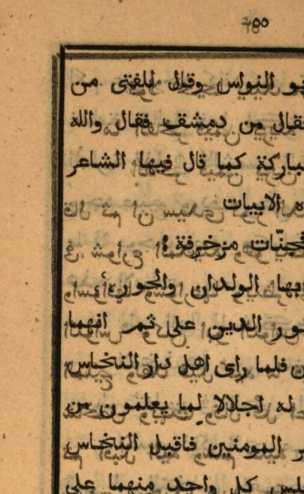 ٥٥
بو النواس وقال للفتى من
فقال من دمشق فقال والله
مباركة كما قال فيها الشاعر
ه الابيات
فجنّات مزخرفة
بها الولدان والحور
ور الدين على ثم انهما
فلما راى اهل دار النخاس
له اجلالا لما يعلمون من
ر المومنين فاقبل النخاس
لس كل واحد منهما على